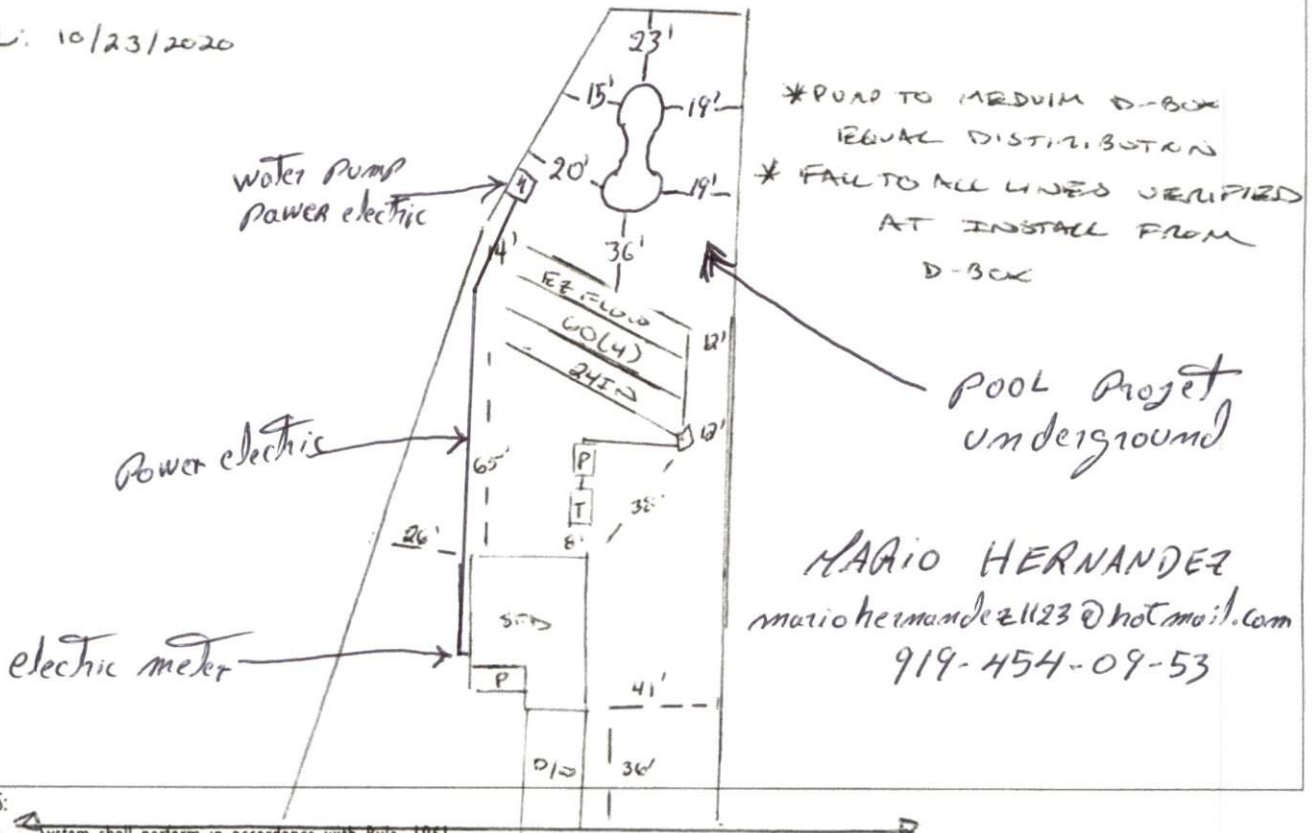 10/23/2020
23'
15'
19'
* PUMP TO MEDUIM D-BOX
EQUAL DISTRIBUTION
* FALL TO ALL LINES VERIFIED
AT INSTALL FROM
D-BOX
water pump
power electric
20'
19'
36'
EZ FLOW
60(4)
24IN
12'
12'
pool Projet
underground
power electric
65'
P
T
8'
26'
MARIO HERNANDEZ
mariohernandez1123@hotmail.com
919-454-09-53
SFD
electric meter
P
41'
36'